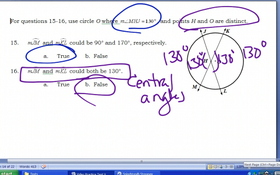 For questions 15-16, use circle O where m∠MOL = 130°, and points H and O are distinct.
15. mJM and mKL could be 90° and 170°, respectively.
a. True b. False
16. mJM and mKL could both be 130°.
a. True b. False
Central
angles
130° 130° 130° 130°
J K
H
M L